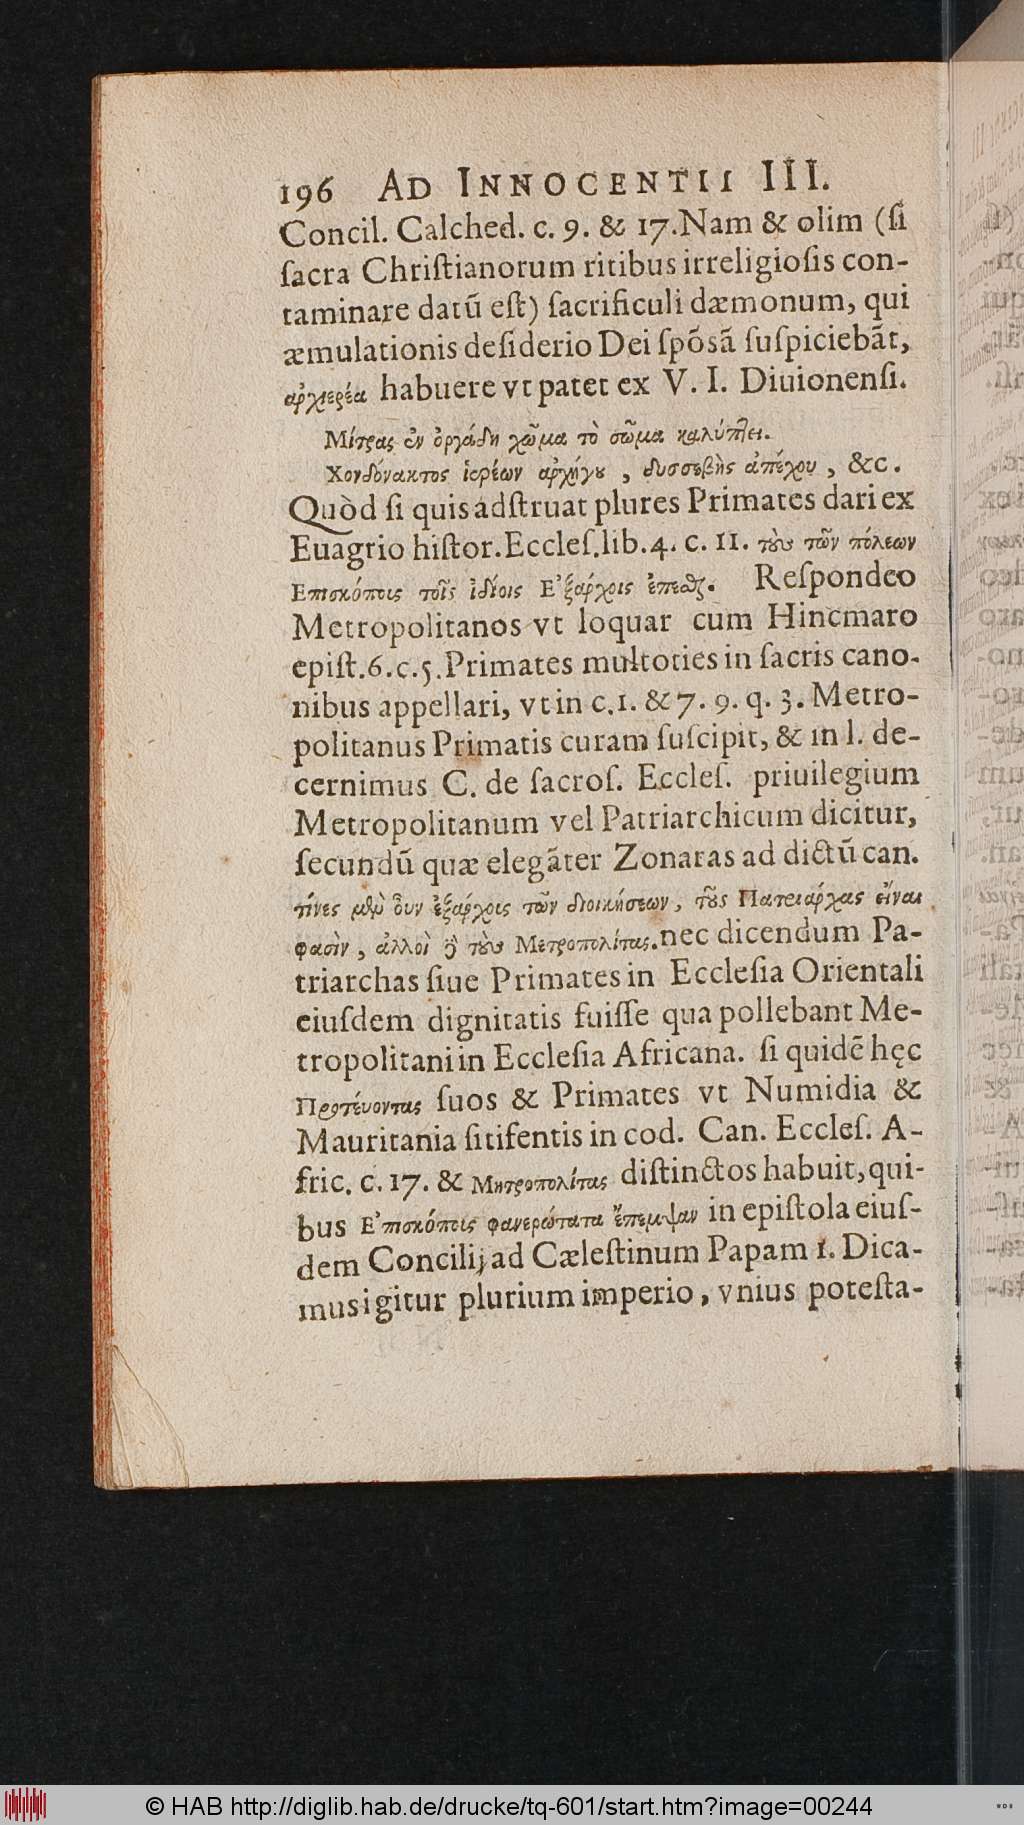 196 AD INNOCENTII III.
Concil. Calched. c. 9. & 17. Nam & olim (ſi
ſacra Chriſtianorum ritibus irreligioſis con-
taminare datũ eſt) ſacrificuli dæmonum, qui
æmulationis deſiderio Dei ſpõsã ſuſpiciebãt,
ἀρχιερέα habuere vt patet ex V. I. Diuionenſi.
Μίτρας ἐν ὀργάδη χῶμα τὸ σῶμα καλύπτει.
Χονδόνακτος ἱερέων ἀρχήγου, δυσσεβὴς ἀπέχου, &c.
Quòd ſi quis adſtruat plures Primates dari ex
Euagrio hiſtor. Eccleſ. lib. 4. c. 11. τοὺς τῶν πόλεων
Ἐπισκόποις τοῖς ἰδίοις Ἐ᾽ξάρχοις Reſpondeo
Metropolitanos vt loquar cum Hincmaro
epiſt. 6. c. 5. Primates multoties in ſacris cano-
nibus appellari, vt in c. 1. & 7. 9. q. 3. Metro-
politanus Primatis curam ſuſcipit, & in l. de-
cernimus C. de ſacroſ. Eccleſ. priuilegium
Metropolitanum vel Patriarchicum dicitur,
ſecundũ quæ elegãter Zonaras ad dictũ can.
τίνες μὲν οὖν ἐξάρχοις τῶν διοικήσεων, τοῦς Πατριάρχας εἶναι
φασὶν, ἀλλοὶ δὲ τοὺς Μετροπολίτας. nec dicendum Pa-
triarchas ſiue Primates in Eccleſia Orientali
eiuſdem dignitatis fuiſſe qua pollebant Me-
tropolitani in Eccleſia Africana. ſi quidẽ hęc
Πρωτέυοντας ſuos & Primates vt Numidia &
Mauritania ſitifentis in cod. Can. Eccleſ. A-
fric. c. 17. & Μητροπολίτας diſtinctos habuit, qui-
bus Ἐ᾽πισκόποις φανερώτατα ἔπεμψαν in epiſtola eiuſ-
dem Concilij ad Cæleſtinum Papam 1. Dica-
mus igitur plurium imperio, vnius poteſta-
© HAB http://diglib.hab.de/drucke/tq-601/start.htm?image=00244